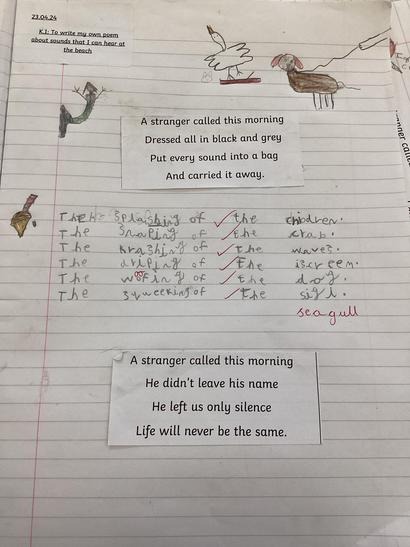 23.04.24
K.I: To write my own poem
about sounds that I can hear at
the beach
A stranger called this morning
Dressed all in black and grey
Put every sound into a bag
And carried it away.
The splashing of the children.
The snaping of the crab.
The krashing of the waves.
The driping of the iscreem.
The wofing of the dog.
The sqweeking of the sigl.
seagull
A stranger called this morning
He didn't leave his name
He left us only silence
Life will never be the same.